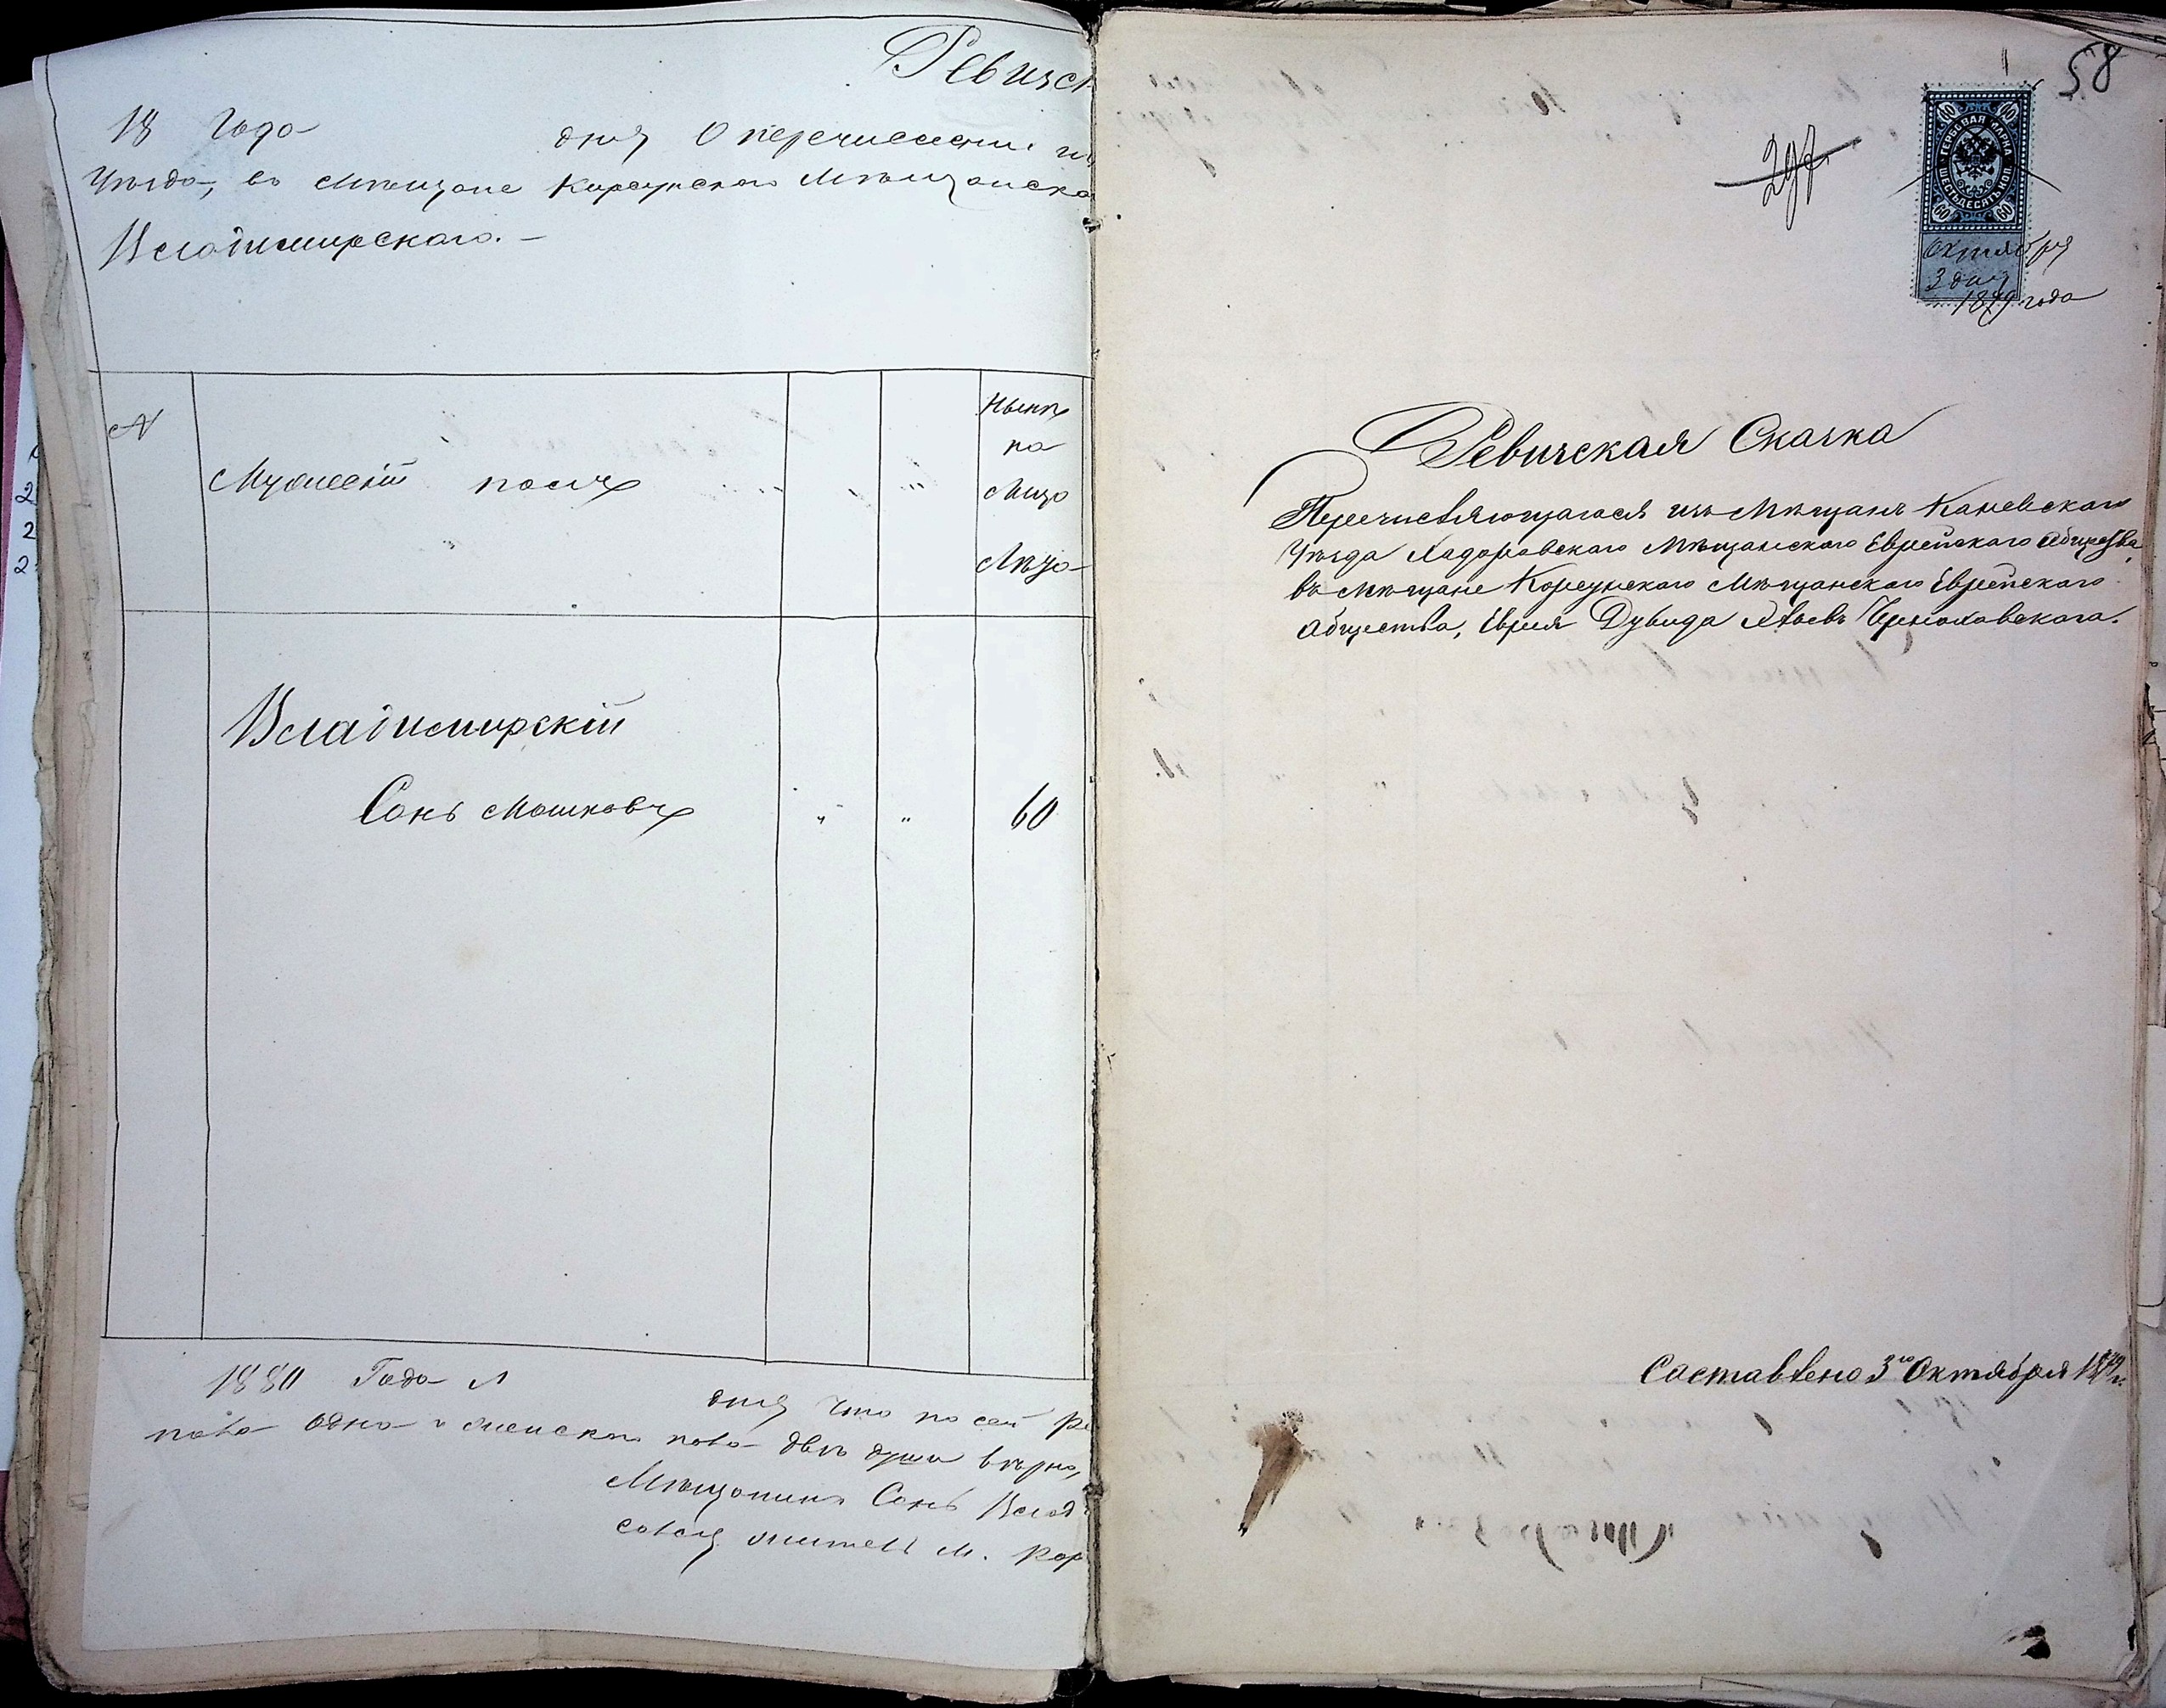 Ревизск
18 Года дня О перечислении из
Уѣзда, въ мѣщане Корсунскаго Мѣщанска
Владимирскаго. –
№
Мужескій полъ
Нынѣ
на
лицо
Лѣта
Владимирскій
Сань Мошковъ
60
1880 Года
дня что по сей Ре
пола одна и женскаго пола двѣ души вѣрно,
Мѣщанинъ Сань Влад
житель М. Кор
58
297
60 60
ГЕРБОВАЯ МАРКА
ШЕСТЬДЕСЯТЪ КОП.
60 60
Октября
3 дня
1879 года
Ревизская Сказка
Перечисляющагося изъ Мѣщанъ Каневскаго
Уѣзда Ходоровскаго Мѣщанскаго Еврейскаго Общества,
въ мѣщане Корсунскаго Мѣщанскаго Еврейскаго
Общества, Еврея Дувида Черноховскаго.
Составлено 3го Октября 1879 г.